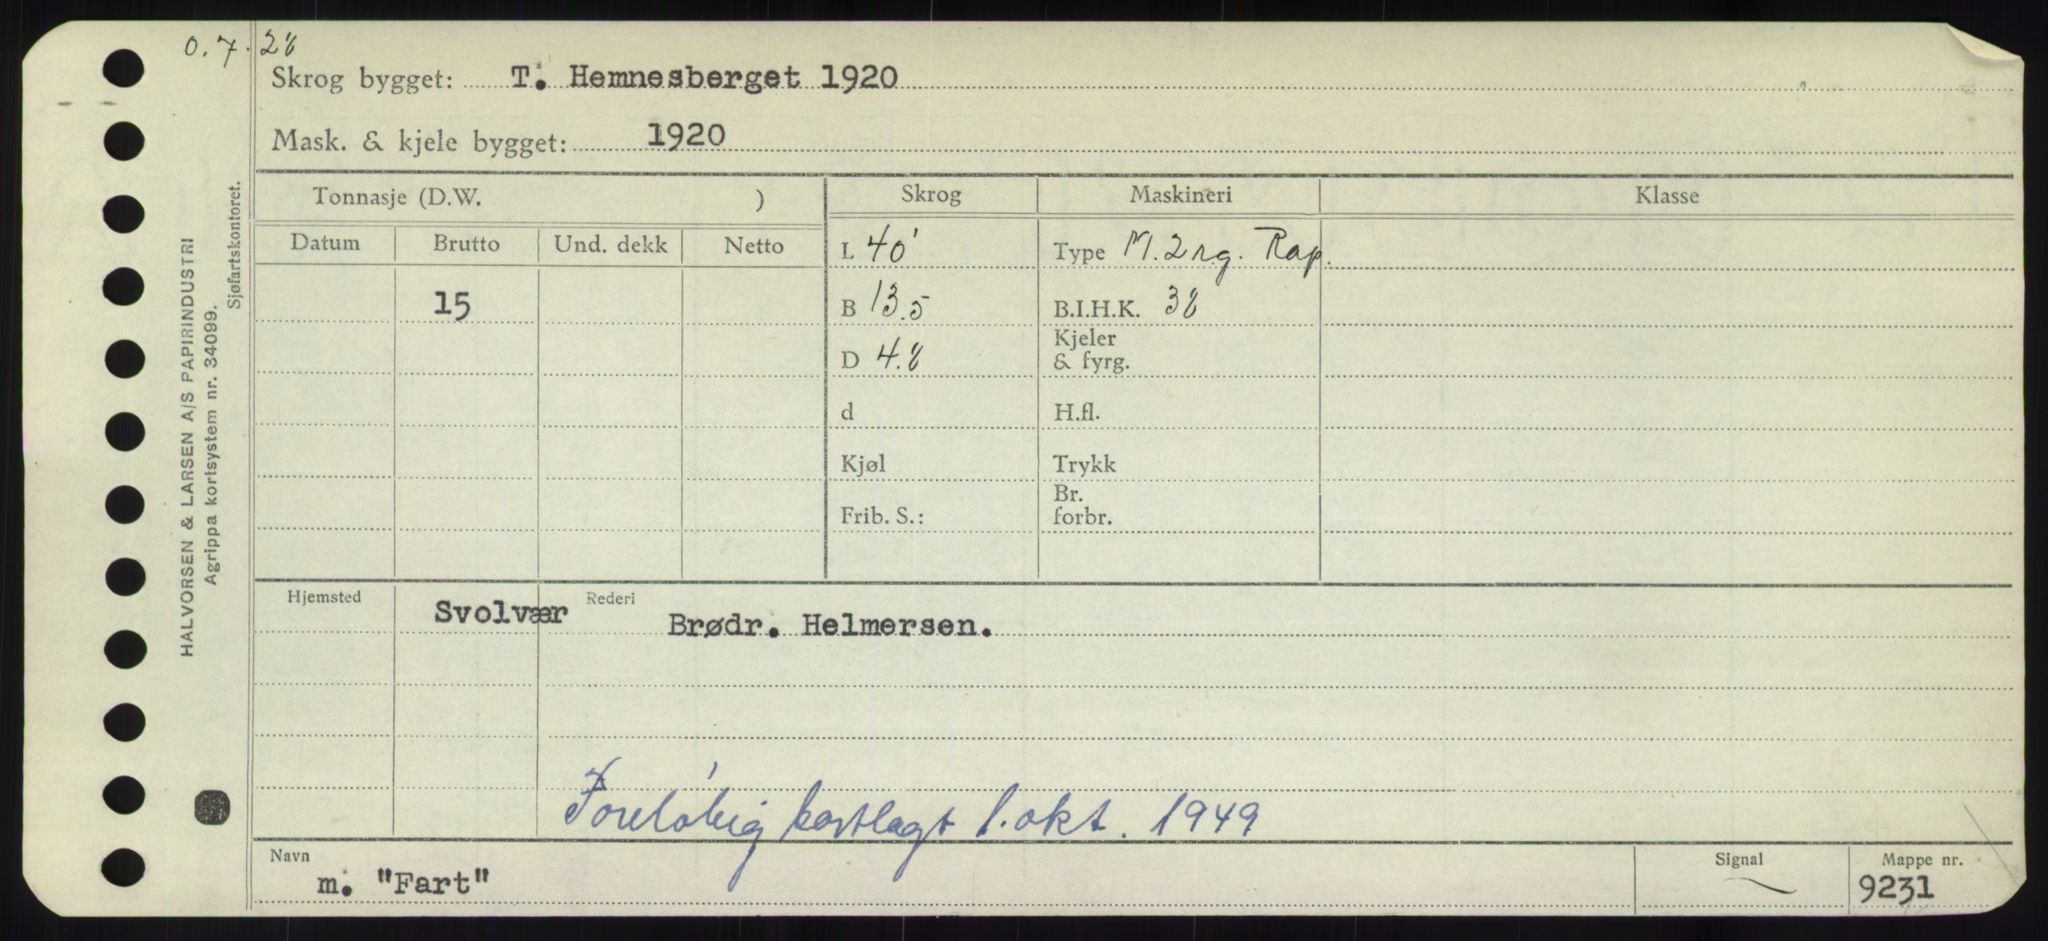 0.7.28
Skrog bygget: T. Hemnesberget 1920
Mask. & kjele bygget: 1920
HALVORSEN & LARSEN A/S PAPIRINDUSTRI
Agrippa kortsystem nr. 34099.
Sjøfartskontoret.
Tonnasje (D.W. ) Skrog Maskineri Klasse
Datum Brutto Und. dekk Netto
L 40' Type M. 2 rg. Rap.
15 B 13.5 B.I.H.K. 38
D 4.8 Kjeler
& fyrg.
d H.fl.
Kjøl Trykk
Frib. S.: Br.
forbr.
Hjemsted Svolvær Rederi Brødr. Helmersen.
Foreløbig kartlagt 1. okt. 1949
Navn Signal Mappe nr.
m. "Fart" 9231